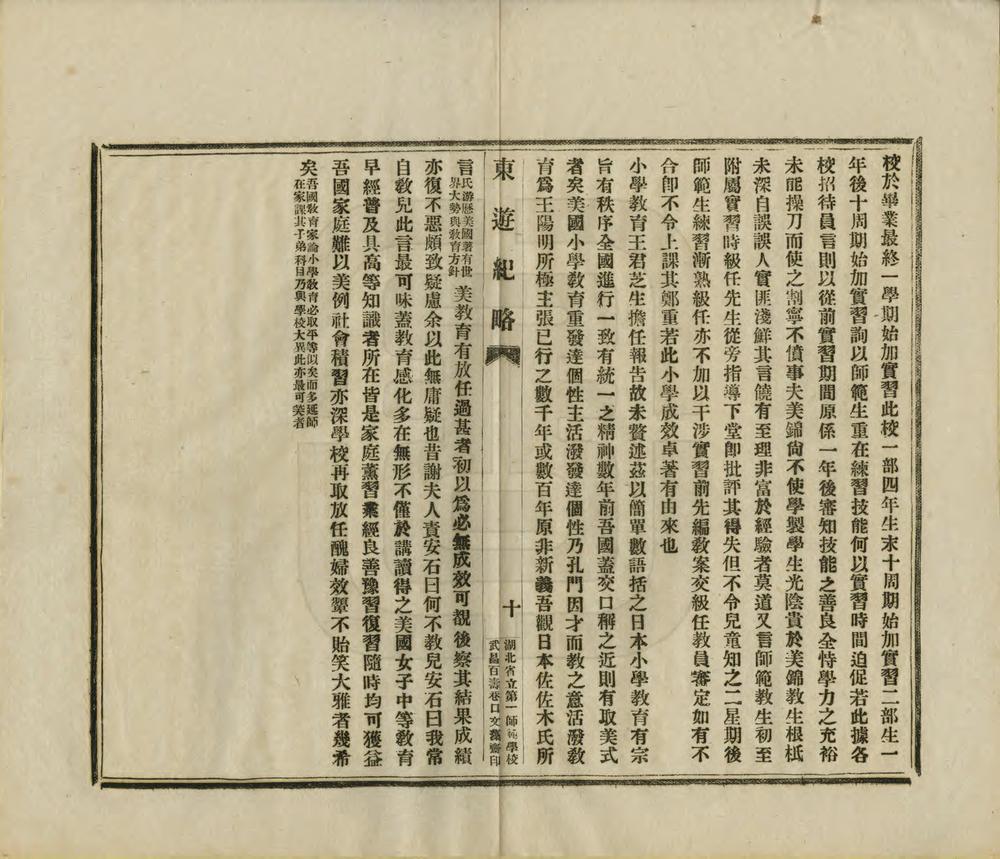 校於畢業最終一學期始加實習此校一部四年生末十周期始加實習二部生一
年後十周期始加實習詢以師範生重在練習技能何以實習時間迫促若此據各
校招待員言則以從前實習期間原係一年後審知技能之善良全恃學力之充裕
未能操刀而使之割寧不僨事夫美錦尙不使學製學生光陰貴於美錦教生根柢
未深自誤誤人實匪淺鮮其言饒有至理非富於經驗者莫道又言師範教生初至
附屬實習時級任先生從旁指導下堂卽批評其得失但不令兒童知之二星期後
師範生練習漸熟級任亦不加以干涉實習前先編教案交級任教員審定如有不
合卽不令上課其鄭重若此小學成效卓著有由來也
小學教育王君芝生擔任報告故未贅述茲以簡單數語括之日本小學教育有宗
旨有秩序全國進行一致有統一之精神數年前吾國蓋交口稱之近則有取美式
者矣美國小學教育重發達個性主活潑發達個性乃孔門因才而教之意活潑教
育爲王陽明所極主張已行之數千年或數百年原非新義吾觀日本佐佐木氏所
東遊紀略
十
湖北省立第一師範學校
武昌百壽巷口文藻齋印
言氏游歷美國著有世界大勢與教育方針美教育有放任過甚者初以爲必無成效可覩後察其結果成績
亦復不惡頗致疑慮余以此無庸疑也昔謝夫人責安石曰何不教兒安石曰我常
自教兒此言最可味蓋教育感化多在無形不僅於講讀得之美國女子中等教育
早經普及具高等知識者所在皆是家庭薰習業經良善豫習復習隨時均可獲益
吾國家庭難以美例社會積習亦深學校再取放任醜婦效顰不貽笑大雅者幾希
矣吾國教育家論小學教育必取平等似矣而多延師在家課其子弟科目乃與學校大異此亦最可笑者